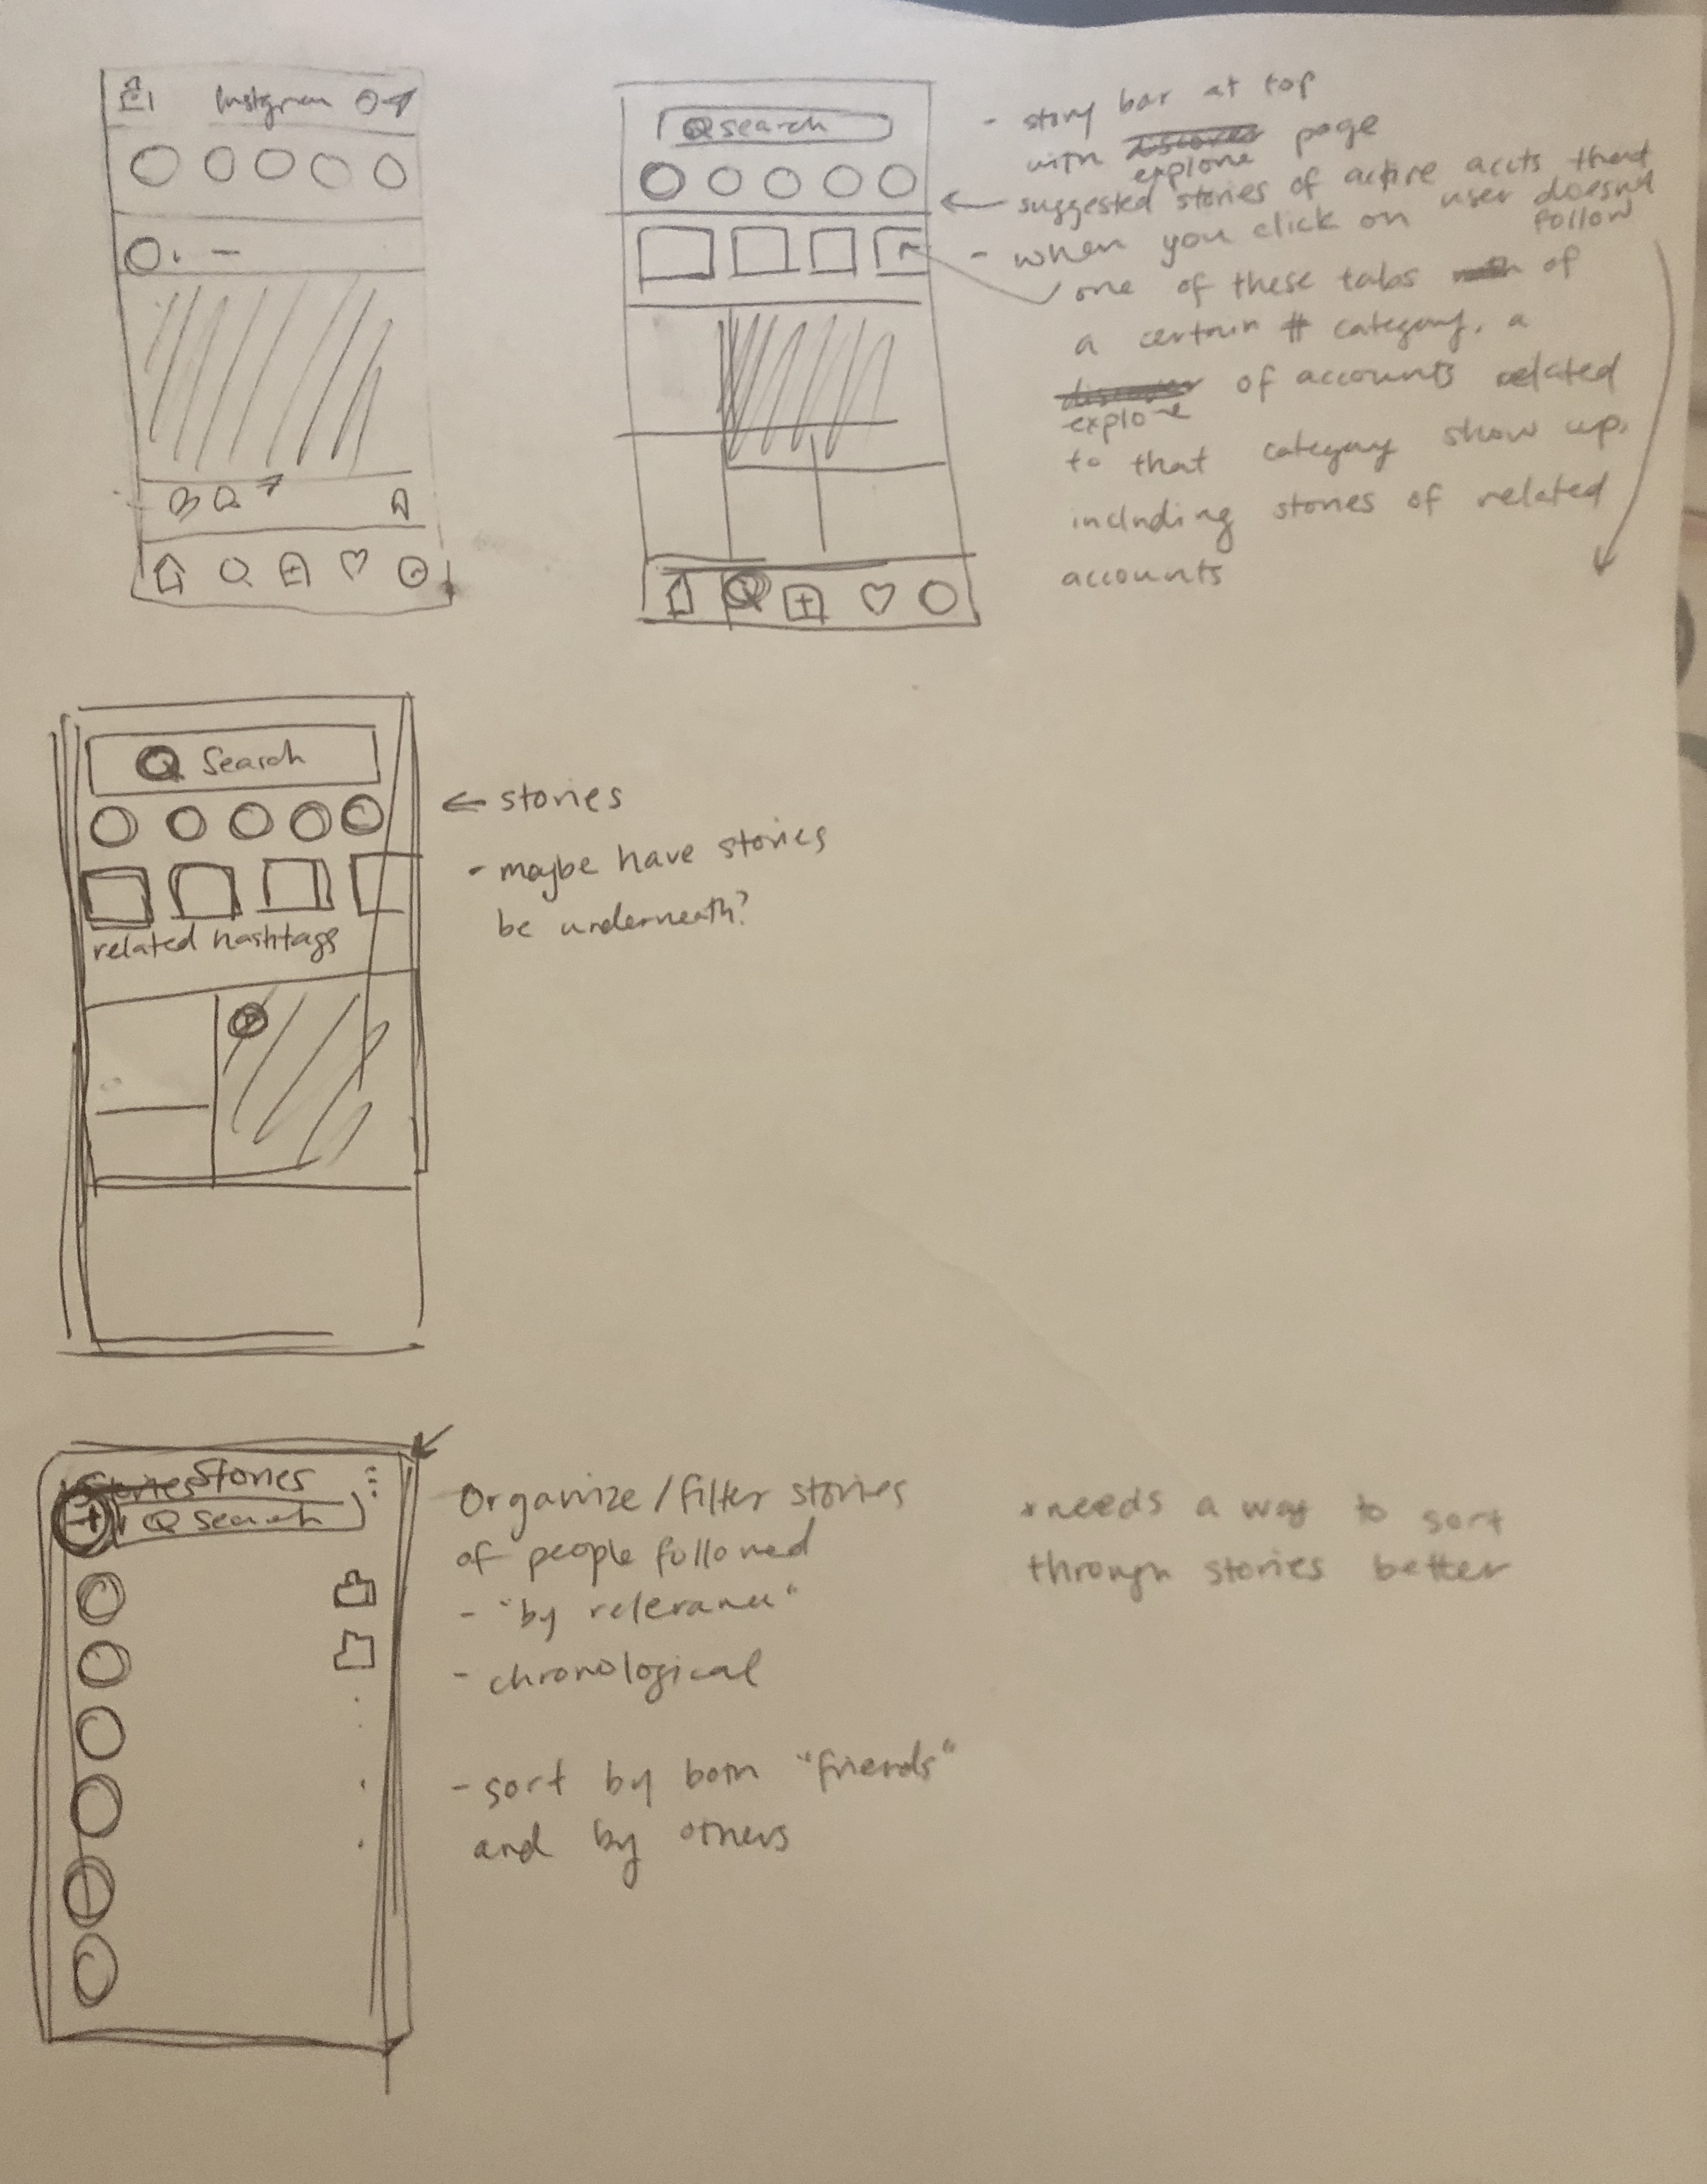 Instgram
search
- story bar at top
with discover page
explore
suggested stories of active accts that
user doesn't
follow
- when you click on
one of these tabs of
a certain # category, a
discover of accounts related
explore
to that category show up,
including stories of related
accounts
Search
related hashtags
← stories
- maybe have stories
be underneath?
Stories Stories
search
Organize/filter stories
of people followed
- "by relevance"
- chronological
- sort by both "friends"
and by others
*needs a way to sort
through stories better